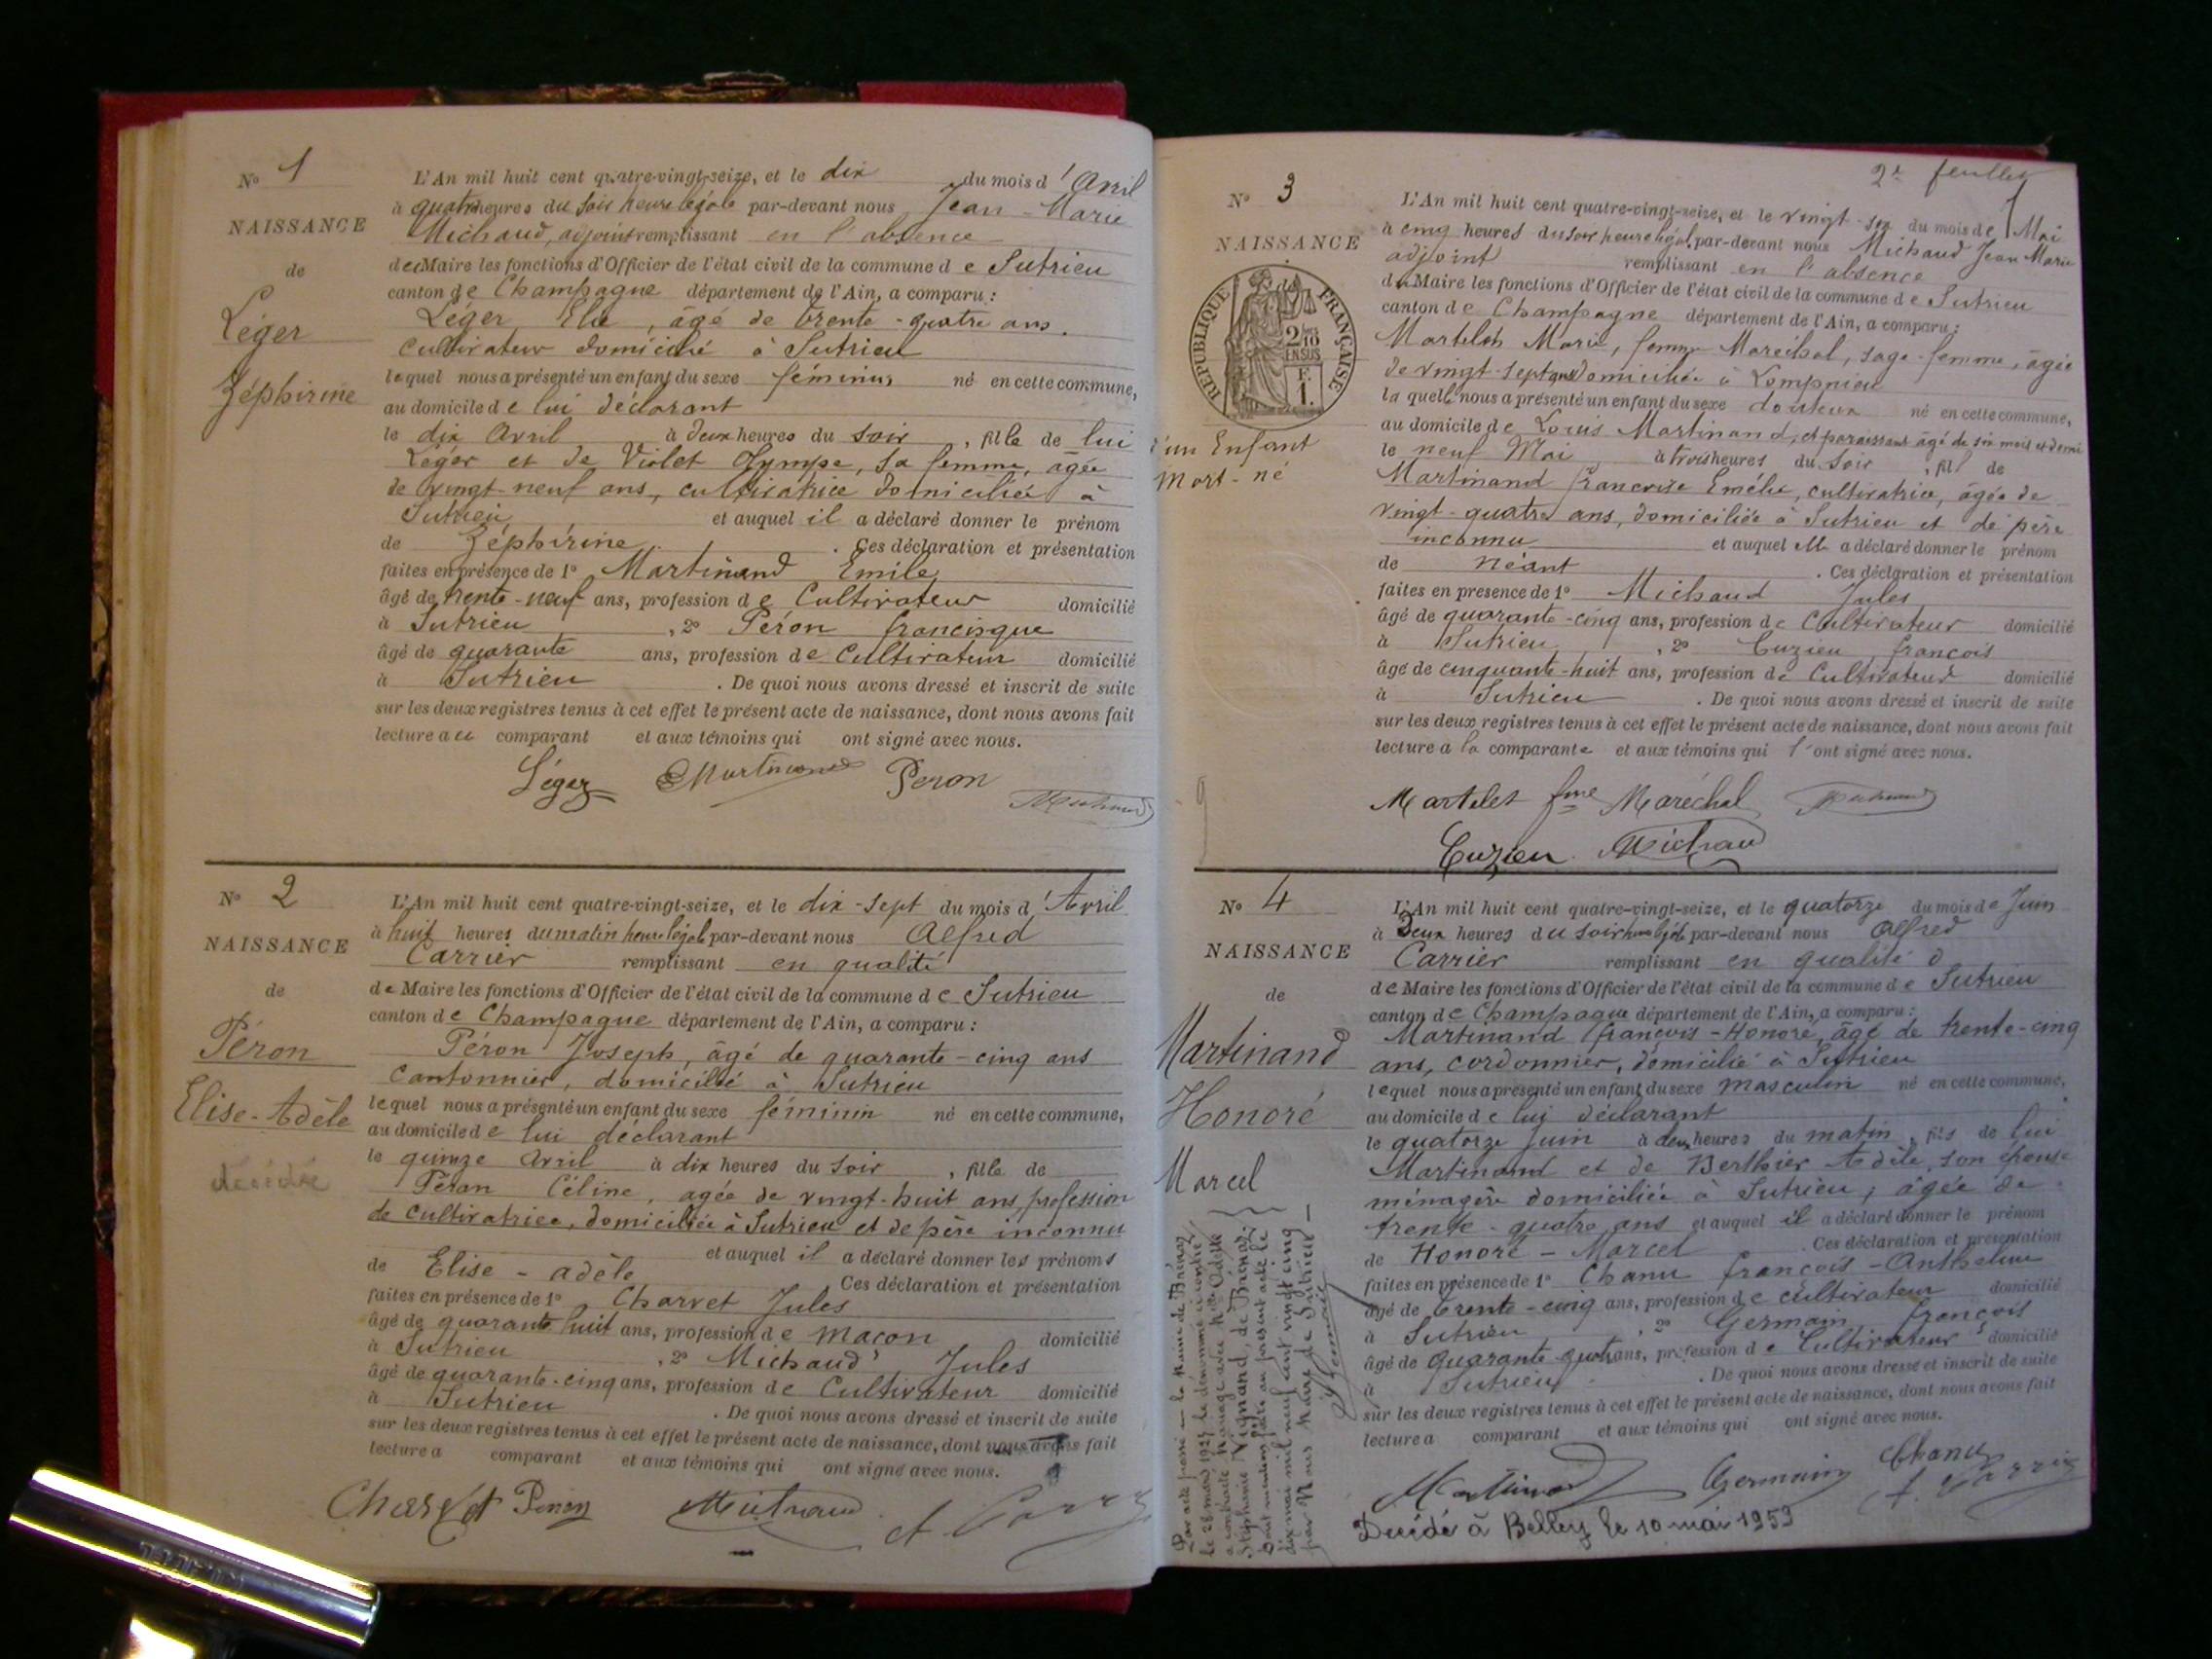 N° 1
NAISSANCE
de
Léger
Zéphirine
L'An mil huit cent quatre-vingt-seize, et le dix du mois d'Avril
à quatre heures du soir heure légale par-devant nous Jean-Marie
Michaud, adjoint remplissant en l'absence
de Maire les fonctions d'Officier de l'état civil de la commune de Sutrieu
canton de Champagne département de l'Ain, a comparu :
Léger Elie, âgé de trente-quatre ans.
cultivateur domicilié à Sutrieu
lequel nous a présenté un enfant du sexe féminin né en cette commune,
au domicile de lui déclarant
le dix Avril à deux heures du soir, fille de lui
Léger et de Violet Olympe, sa femme, âgée
de vingt-neuf ans, cultivatrice domiciliée à
Sutrieu et auquel il a déclaré donner le prénom
de Zéphirine. Ces déclaration et présentation
faites en présence de 1° Martinand Emile
âgé de trente-neuf ans, profession de Cultivateur domicilié
à Sutrieu, 2° Péron francisque
âgé de quarante ans, profession de Cultivateur domicilié
à Sutrieu. De quoi nous avons dressé et inscrit de suite
sur les deux registres tenus à cet effet le présent acte de naissance, dont nous avons fait
lecture au comparant et aux témoins qui ont signé avec nous.
Léger Martinand Peron Michaud
N° 2
NAISSANCE
de
Péron
Elise-Adèle
décédée
L'An mil huit cent quatre-vingt-seize, et le dix-sept du mois d'Avril
à huit heures du matin heure légale par-devant nous Alfred
Carrier remplissant en qualité
de Maire les fonctions d'Officier de l'état civil de la commune de Sutrieu
canton de Champagne département de l'Ain, a comparu :
Péron Joseph, âgé de quarante-cinq ans
Cantonnier, domicilié à Sutrieu
lequel nous a présenté un enfant du sexe féminin né en cette commune,
au domicile de lui déclarant
le quinze Avril à dix heures du soir, fille de
Péron Céline, agée de vingt-huit ans, profession
de cultivatrice, domiciliée à Sutrieu et de père inconnu
et auquel il a déclaré donner les prénoms
de Elise-adèle Ces déclaration et présentation
faites en présence de 1° Charvet Jules
âgé de quarante huit ans, profession de macon domicilié
à Sutrieu, 2° Michaud Jules
âgé de quarante-cinq ans, profession de Cultivateur domicilié
à Sutrieu. De quoi nous avons dressé et inscrit de suite
sur les deux registres tenus à cet effet le présent acte de naissance, dont nous avons fait
lecture a comparant et aux témoins qui ont signé avec nous.
Charvet Peron Michaud A. Carrier
2e feuillet
N° 3
NAISSANCE
de
RÉPUBLIQUE FRANÇAISE
2/10
EN SUS
F.
1.
d'un Enfant
Mort-né
L'An mil huit cent quatre-vingt-seize, et le vingt-six du mois de Mai
à cinq heures du soir heure légale par-devant nous Michaud Jean Marie
adjoint remplissant en l'absence
du Maire les fonctions d'Officier de l'état civil de la commune de Sutrieu
canton de Champagne département de l'Ain, a comparu :
Martelet Marie, femme Maréchal, sage-femme, âgée
de vingt-sept ans domiciliée à Lompnieu
laquelle nous a présenté un enfant du sexe douteux né en cette commune,
au domicile de Louis Martinand, et paraissant âgé de six mois et demi
le neuf Mai à trois heures du soir, fil de
Martinand francoise Emélie, cultivatrice, âgée de
vingt-quatre ans, domiciliée à Sutrieu et de père
inconnu et auquel a déclaré donner le prénom
de néant. Ces déclaration et présentation
faites en présence de 1° Michaud Jules
âgé de quarante-cinq ans, profession de Cultivateur domicilié
à Sutrieu, 2° Cuzieu francois
âgé de cinquante-huit ans, profession de Cultivateur domicilié
à Sutrieu. De quoi nous avons dressé et inscrit de suite
sur les deux registres tenus à cet effet le présent acte de naissance, dont nous avons fait
lecture a la comparante et aux témoins qui l'ont signé avec nous.
Martelet fme Maréchal Michaud
Cuzieu Michaud
N° 4
NAISSANCE
de
Martinand
Honoré
Marcel
L'An mil huit cent quatre-vingt-seize, et le quatorze du mois de Juin
à Deux heures du soir heure légale par-devant nous Alfred
Carrier remplissant en qualité d
de Maire les fonctions d'Officier de l'état civil de la commune de Sutrieu
canton de Champagne département de l'Ain, a comparu :
Martinand francois-Honoré, âgé de trente-cinq
ans, cordonnier, domicilié à Sutrieu
lequel nous a présenté un enfant du sexe masculin né en cette commune,
au domicile de lui déclarant
le quatorze Juin à deux heures du matin, fils de lui
Martinand et de Berthier Adèle, son épouse
ménagère domiciliée à Sutrieu, âgée de
trente-quatre ans et auquel il a déclaré donner le prénom
de Honoré-Marcel. Ces déclaration et présentation
faites en présence de 1° Chanu francois-Anthelme
âgé de trente-cinq ans, profession de cultivateur domicilié
à Sutrieu, 2° Germain françois
âgé de quarante-quatre ans, profession de Cultivateur domicilié
à Sutrieu. De quoi nous avons dressé et inscrit de suite
sur les deux registres tenus à cet effet le présent acte de naissance, dont nous avons fait
lecture a comparant et aux témoins qui ont signé avec nous.
Martinand Germain Chanu A. Carrier
Décédé à Belley le 10 mai 1959
Par acte passé à la Mairie de Brénaz
le 28 mars 1925 le dénommé ci-contre
a contracté mariage avec Odette
Stéphanie Vignand, de Brénaz
Dont mention faite au présent acte le
dix mai mil neuf cent vingt cinq
par Nous Maire de Sutrieu